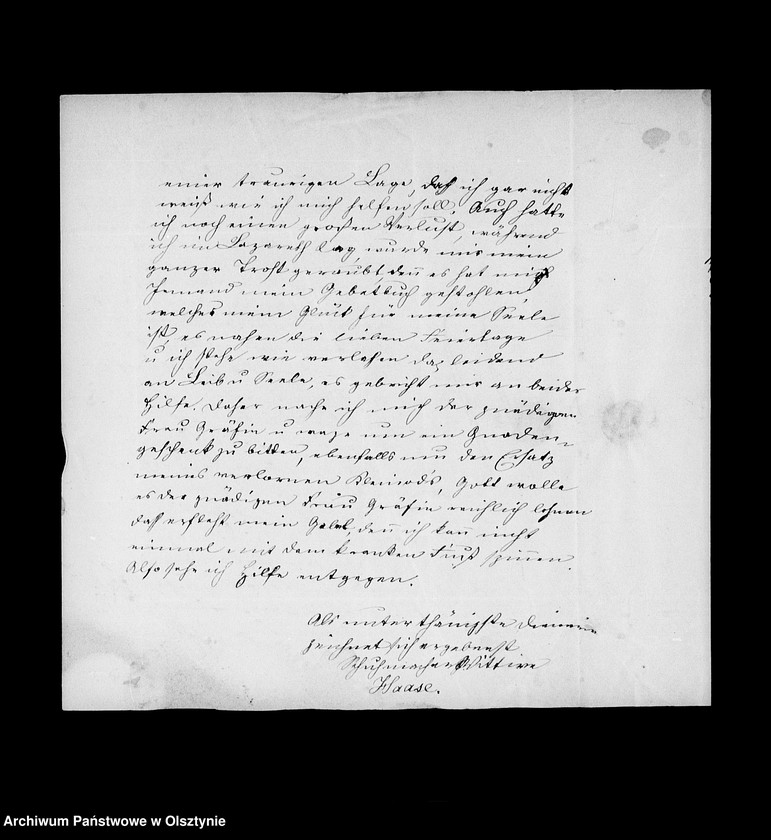 einer traurigen Lage, daß ich gar nicht
weiß wie ich mich helfen soll. Auch hatte
ich noch einen großen Verlust, während
ich im Lazareth lag, wurde mir mein
ganzer Trost geraubt, denn es hat mir
Jemand mein Gebetbuch gestohlen,
welches mein Glück für meine Seele
ist, es nahen die lieben Feiertage
u ich stehe wie verlassen da, leidend
an Leib u Seele, es gebricht mir an beider
Hilfe. Daher nahe ich mich der gnädigen
Frau Gräfin u wage um ein Gnaden-
geschenk zu bitten, ebenfalls um den Ersatz
meines verlornen Kleinods, Gott wolle
es der gnädigen Frau Gräfin reichlich lohnen
daß erfleht mein Gebet, denn ich kann nicht
einmal mit dem kranken Fuß spinnen.
Also sehe ich Hilfe entgegen.
Als unterthänigste Dienerin
zeichnet sich ergebenst
Schuhmacher Wittwe
Haase.
Archiwum Państwowe w Olsztynie